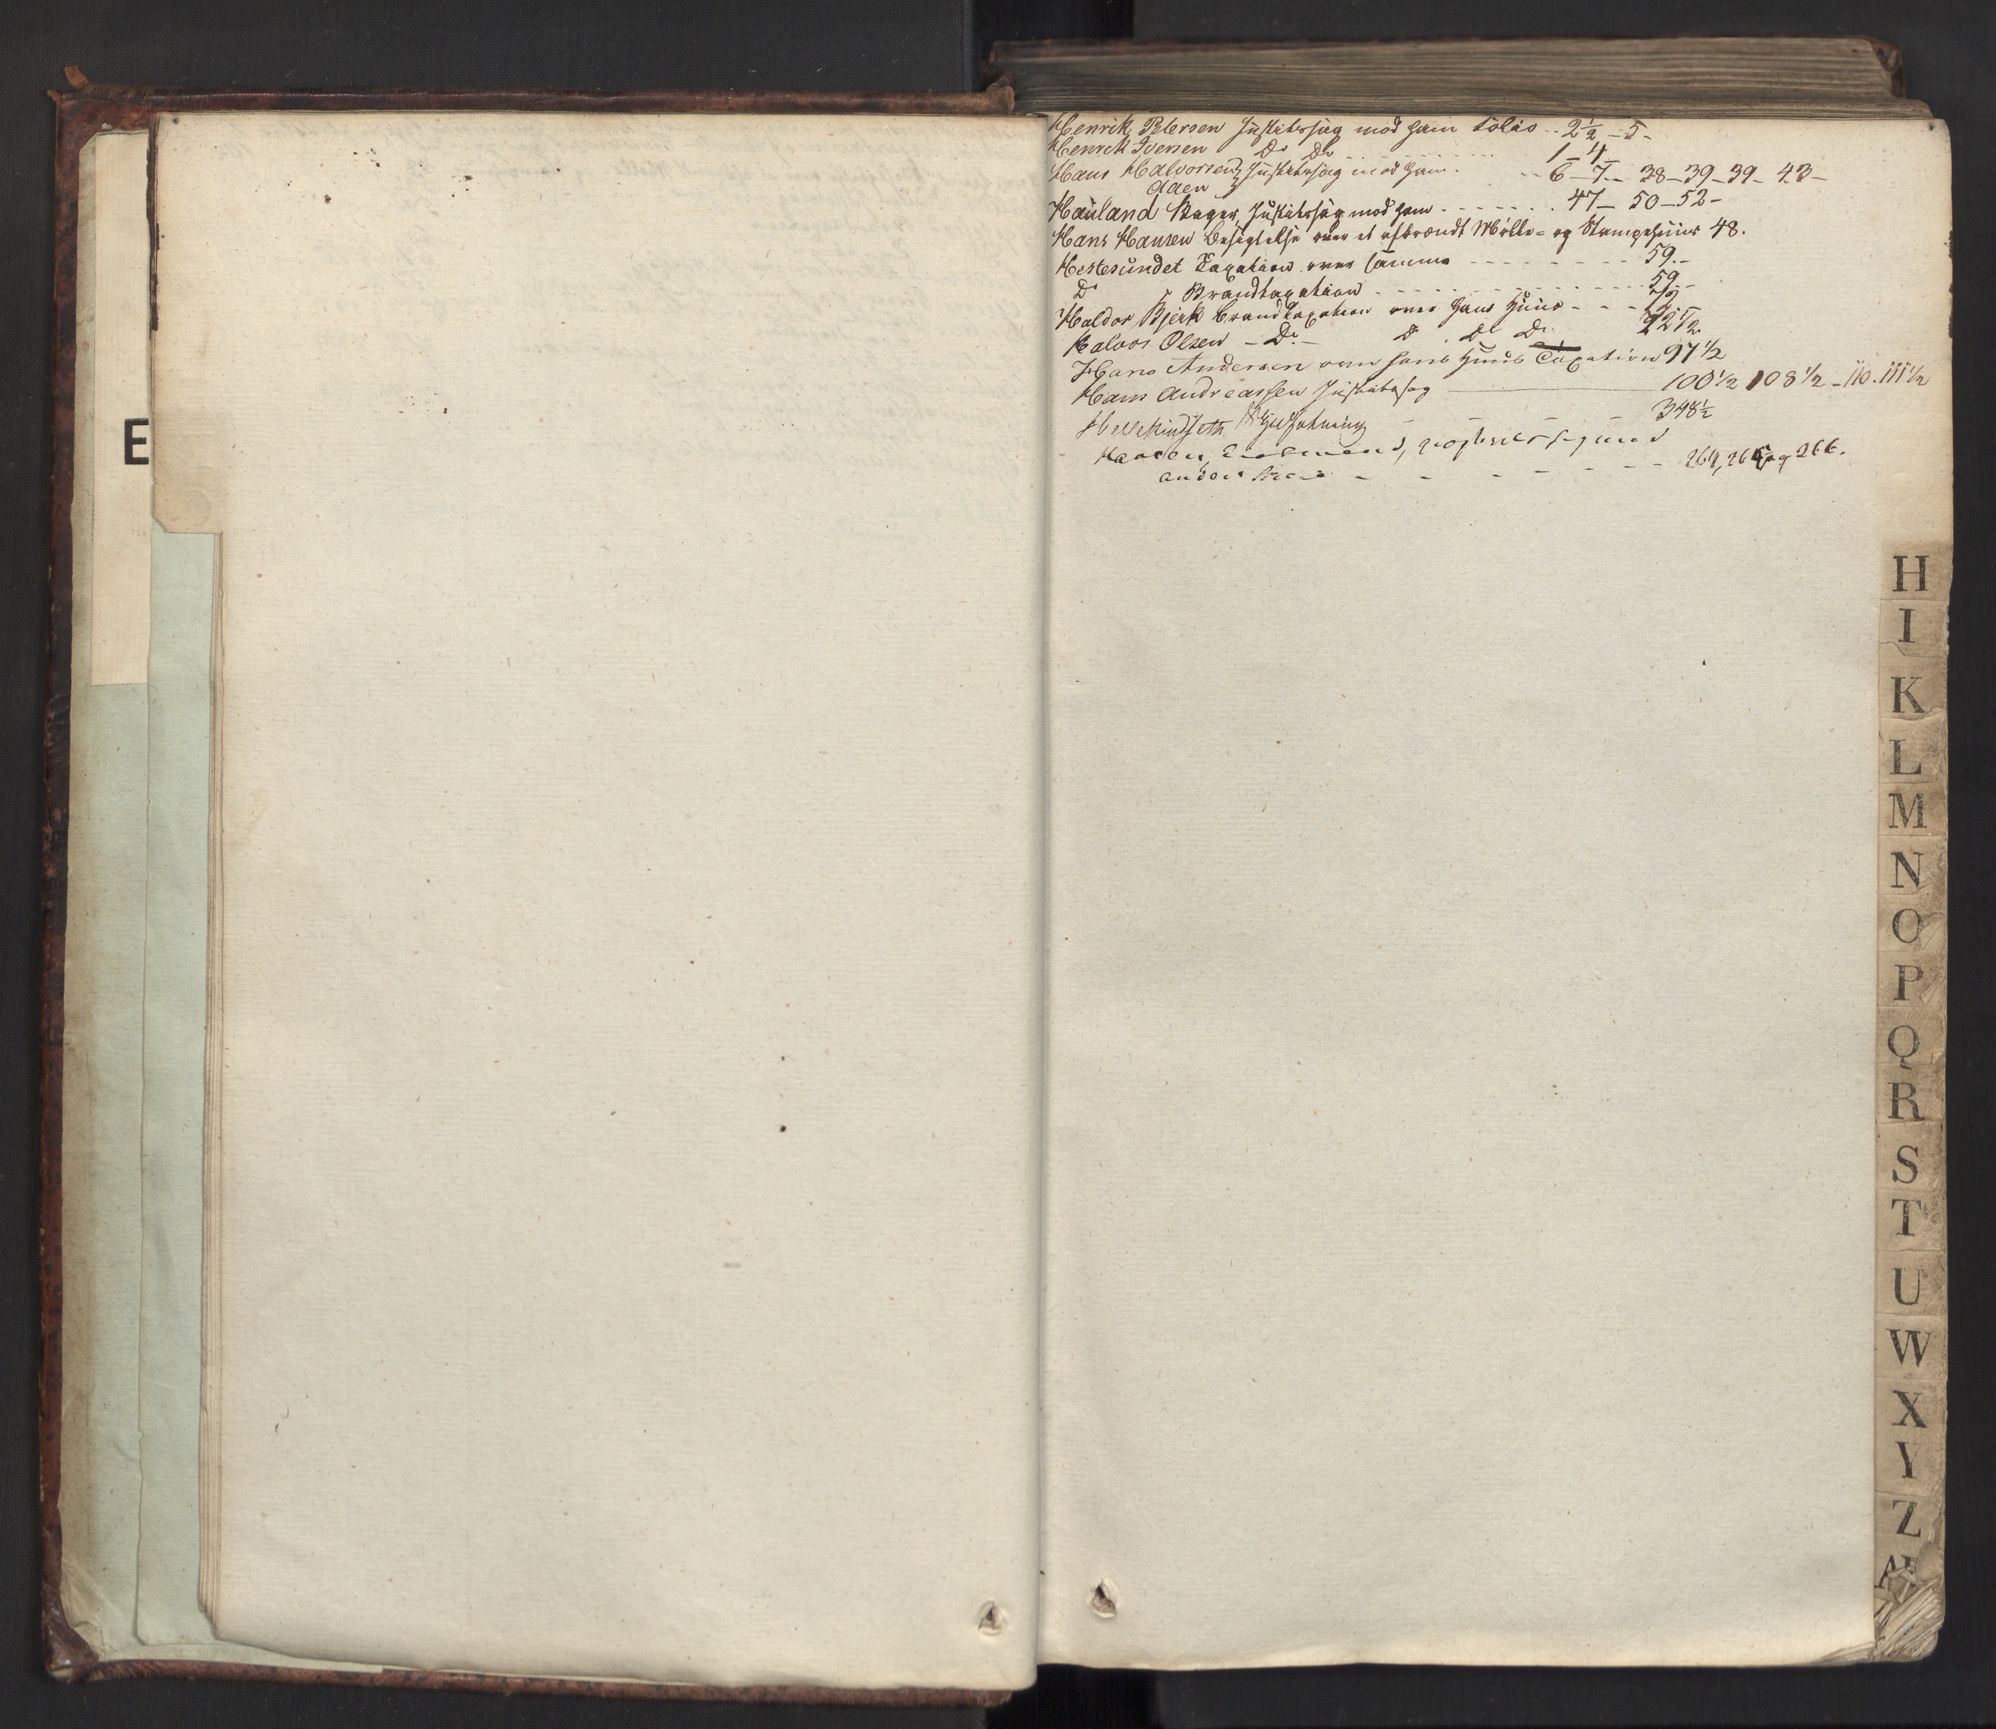 E
Henrik Petersen Justitssag mod ham Folio .. 2 1/2 - 5 -
Henrik Iversen Do Do 1 - 4 -
Hans Halvorsen Justitssag mod ham 6 - 7 - 38 - 39 - 39 - 43 -
Aaen
Hauland Bager, Justitssag mod ham 47 - 50 - 52 -
Hans Hansen Besigtelse over et afbrændt Mølle- og Stampehuus 48.
Hestesundet Taxation over samme 59. -
Do Brandtaxation 59. -
Haldor Bjerk Brandtaxation over hans Huus
Halvor Olsen - Do - Do Do Do 92 1/2
Hans Andersen over hans Huus Taxation 97 1/2
Hans Andreassen Justitssag 100 1/2 108 1/2 - 110. 111 1/2
348 1/2
264, 265 og 266.
H
I
K
L
M
N
O
P
Q
R
S
T
U
W
X
Y
Z